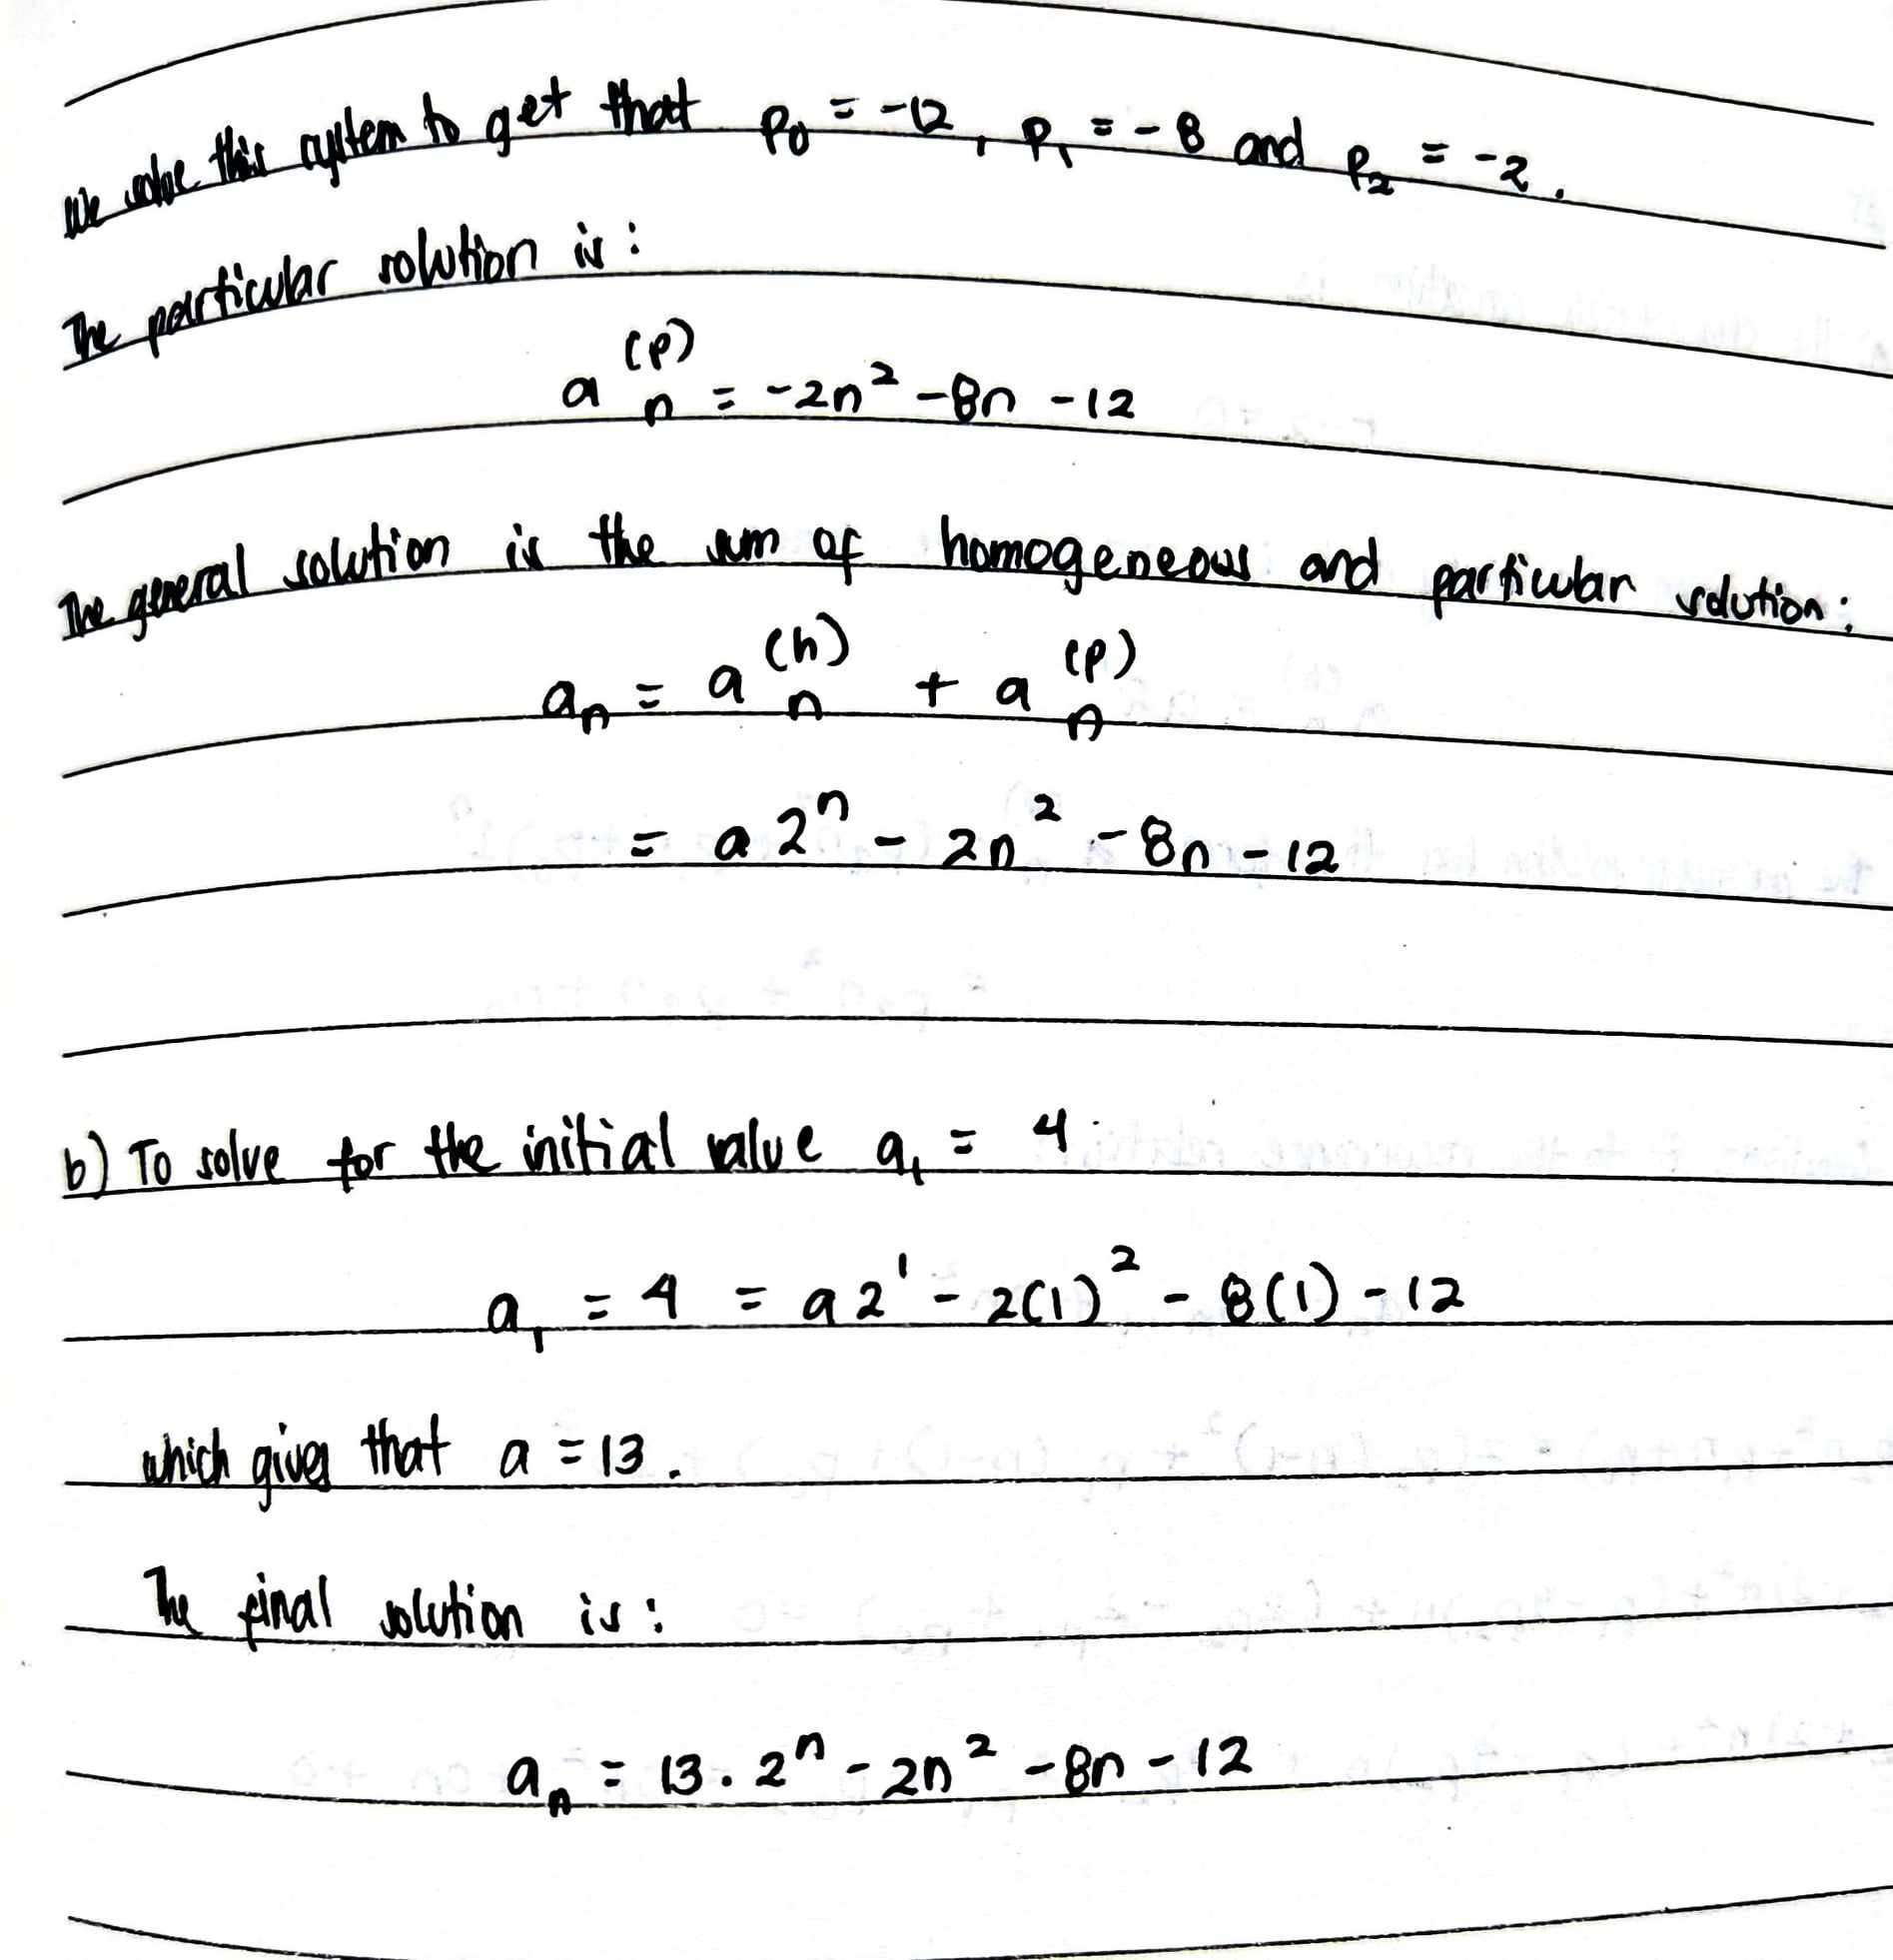 We solve this system to get that p₀ = -12, p₁ = -8 and p₂ = -2.
The particular solution is:
a⁽ᵖ⁾ₙ = -2n² - 8n - 12
The general solution is the sum of homogeneous and particular solution:
aₙ = a⁽ʰ⁾ₙ + a⁽ᵖ⁾ₙ
= a 2ⁿ - 2n² - 8n - 12
b) To solve for the initial value a₁ = 4
a₁ = 4 = a 2¹ - 2(1)² - 8(1) - 12
which gives that a = 13.
The final solution is:
aₙ = 13 . 2ⁿ - 2n² - 8n - 12